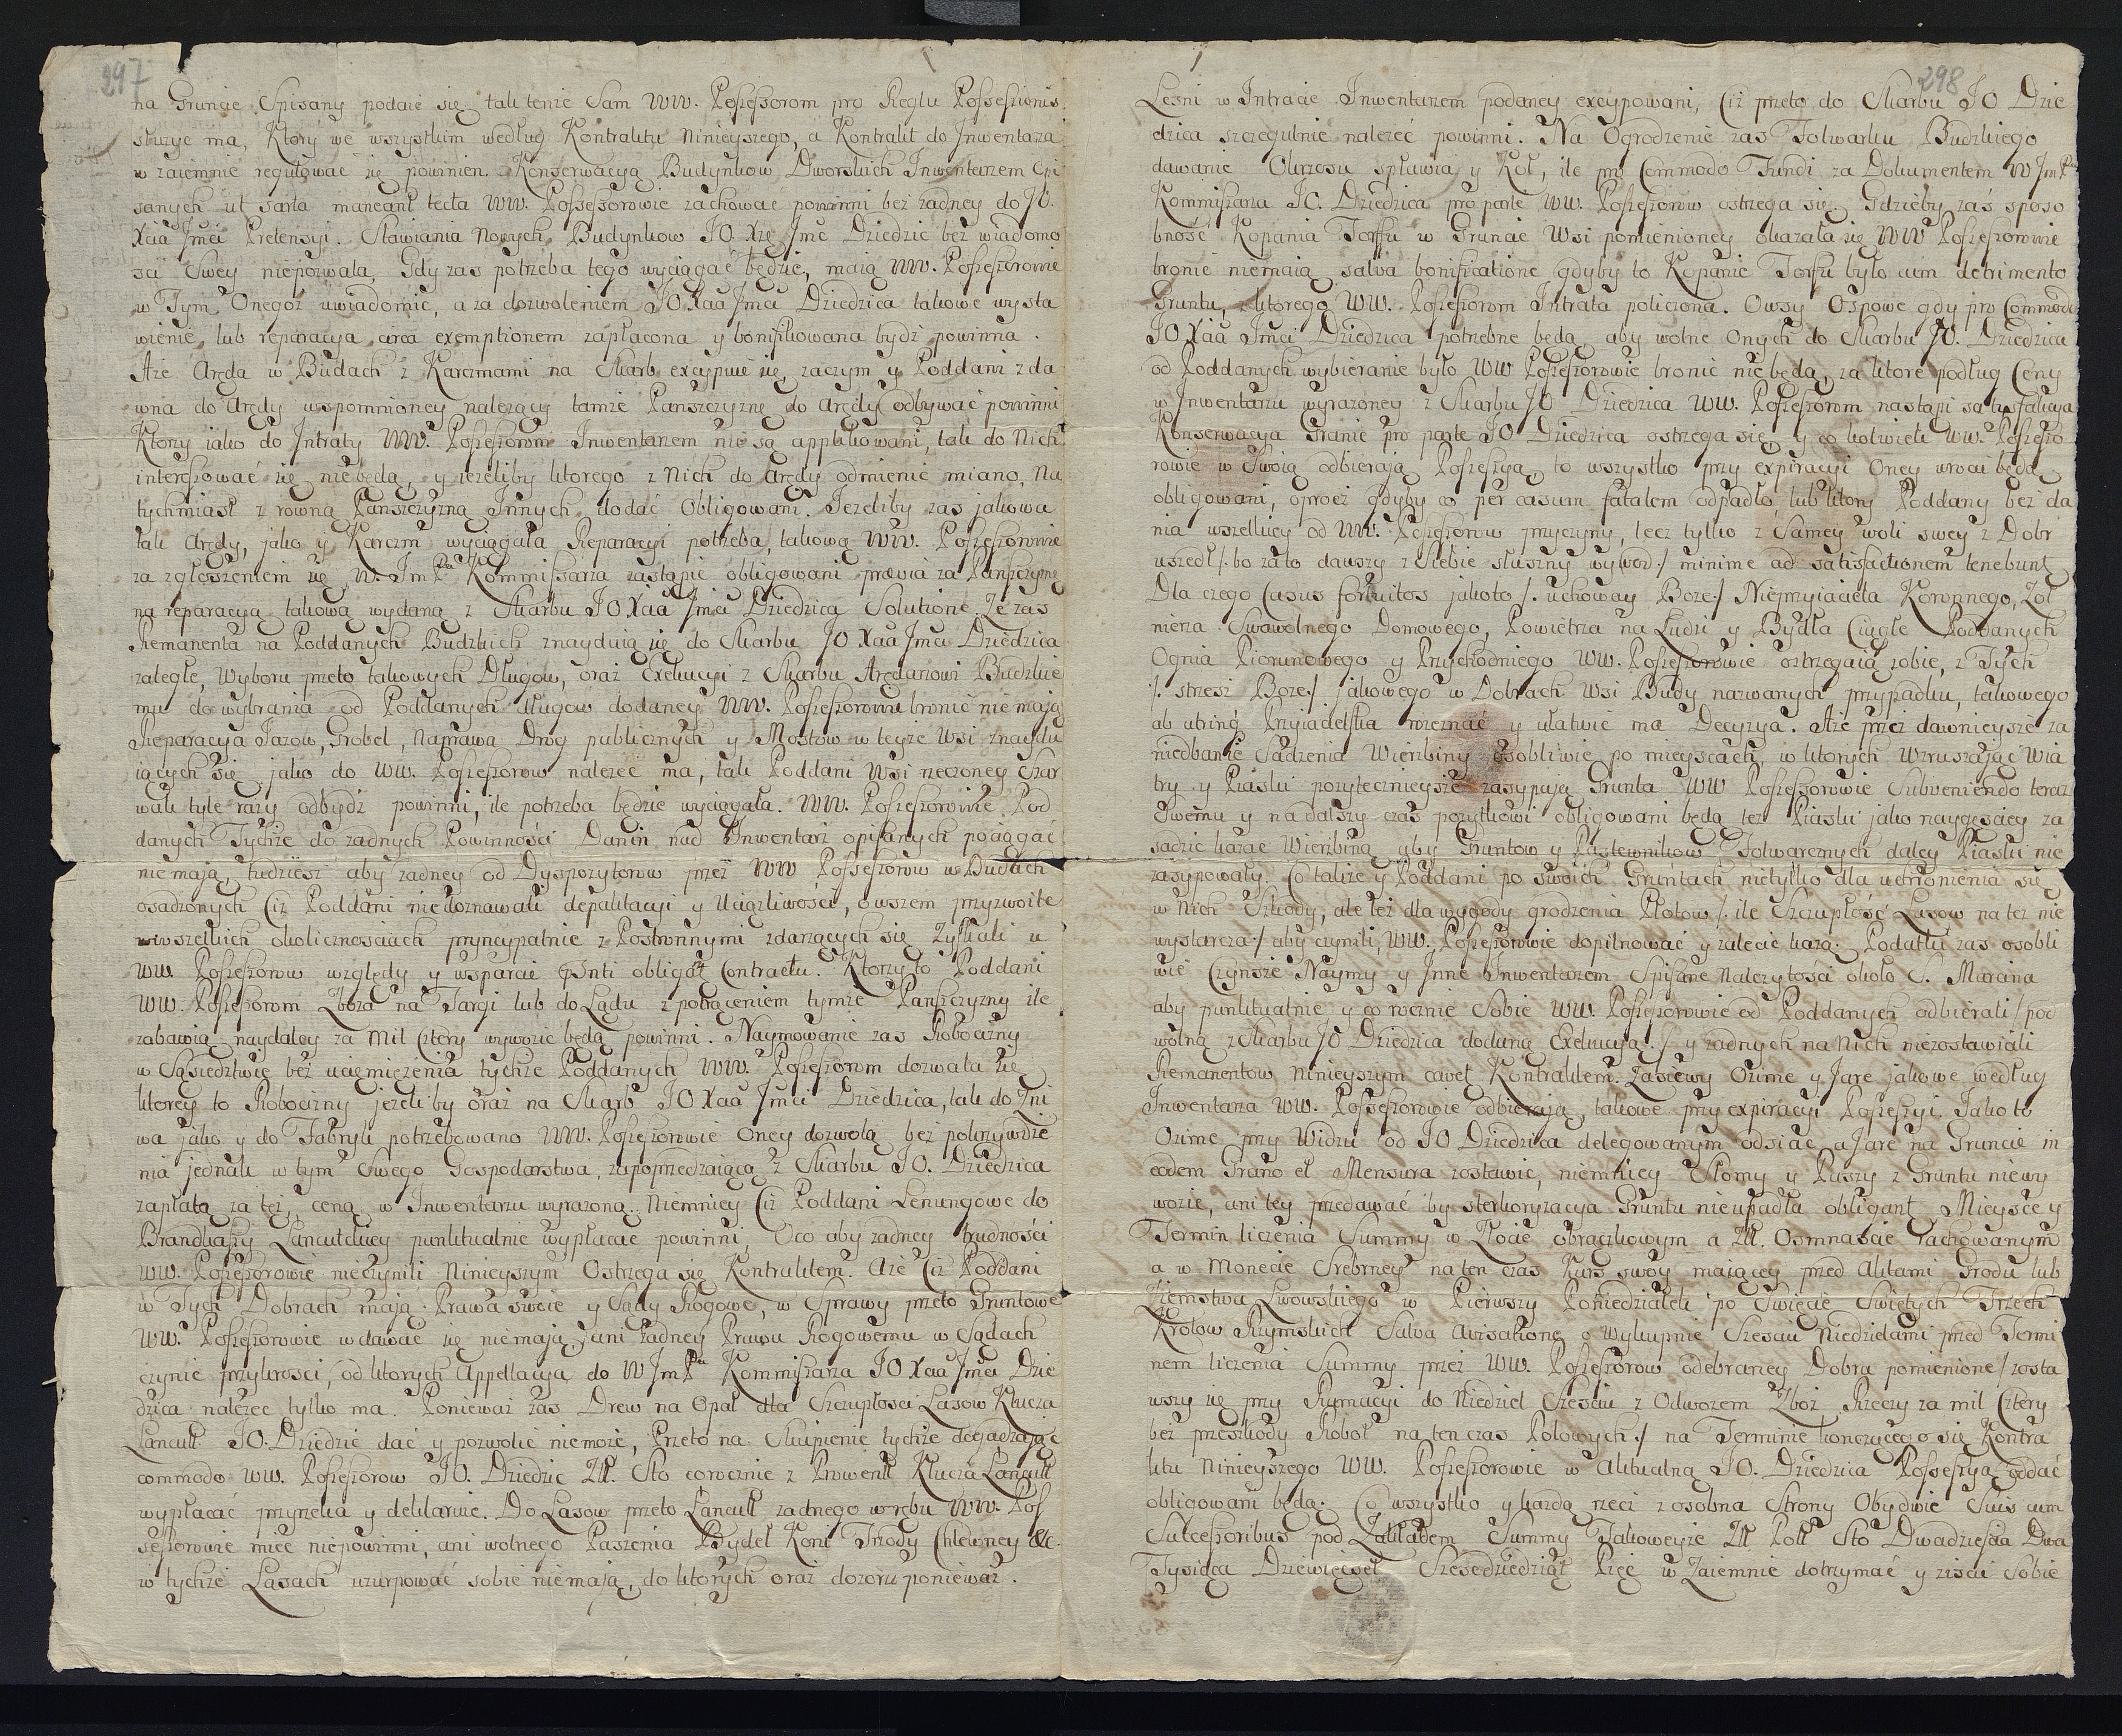 297
na Gruncie Spisany podaie się tak tenże Sam WW. Possessorom pro Regla Possessionis
służyć ma, Ktory we wszystkim według Kontraktu Ninieyszego, a Kontrakt do Jnwentarza
w zaiemnie regulować się powinien. Konserwacya Budynkow Dworskich Jnwentarzem Opi
sanych ut sarta maneant tecta WW. Possessorowie zachować powinni bez żadney do JO.
Xcia Jmci Pretensyi. Stawiania Nowych Budynkow JO. Xże Jmć Dziedzic bez wiadomo
ści Swey niepozwala. Gdy zas potrzeba tego wyciągać będzie, maią WW. Possessorowie
w Tym Onegoż uwiadomić, a za dozwoleniem JO Xcia Jmci Dziedzica takowe wysta
wienie, lub reparacya circa exemptionem zapłacona y bonifikowana bydź powinna.
Aże Aręda w Budach z Karczmami na Skarb excypuie się, zaczym y Poddani zda
wna do Arędy wspomnioney należący tamże Panszczyznę do Arędy odbywać powinni
Ktorzy iako do Jntraty WW. Possessorom Jnwentarzem nie są applikowani, tak do Nich
interessować się niebędą, y ieżeliby ktorego z Nich do Arędy odmienić miano, Na
tychmiast z rowną Panszczyzną Jnnych dodać Obligowani. Jeżeliby zas jakowa
tak Arędy, jako y Karczm wyciągała Reparacyi potrzeba, takową WW. Possessorowie
za zgłoszeniem się W. JmPa Kommissarza zastąpić obligowani prævia za Panszczyznę
na reparacyą takową wydaną z Skarbu JO Xcia Jmci Dziedzica Solutione. Że zas
Remanenta na Poddanych Budzkich znayduią się do Skarbu JO Xcia Jmci Dziedzica
zaległe, Wyboru przeto takowych Długow, oraz Exekucyi z Skarbu Arędarzowi Budzkie
mu do wybrania od Poddanych długow dodaney WW. Possessorowie bronić nie mają
Reparacya Jazow, Grobel, Naprawa Drog publicznych y Mostow w teyże Wsi znaydu
iących się jako do WW. Possessorow należeć ma, tak Poddani Wsi rzeczoney Szar
wark tyle razy odbydź powinni, ile potrzeba będzie wyciągała. WW. Possessorowie Pod
danych Tychże do żadnych Powinności Danin nad Jnwentarz opisanych pociągać
nie mają, tudzież aby żadney od Dyspozytorow przez WW Possessorow w Budach
osadzonych Ciż Poddani niedoznawali depaktacyi y Uciążliwości, owszem przyzwoite
w wszelkich okolicznosciach pryncypalnie z Postronnymi zdarzących się Zyskali u
WW. Possessorow względy y wsparcie Pnti obligat Contractu. Ktorzy to Poddani
WW. Possessorom Zboża na Targi lub do Lądu z potrąceniem tymże Panszczyzny ile
zabawią naydaley za Mil Cztery wywozić będą powinni. Naymowanie zas Robocizny
w Sąsiedztwie bez uciemiężenia tychże Poddanych WW. Possessorom dozwala się
ktorey to Robocizny jeżeliby oraz na Skarb JO Xcia Jmci Dziedzica, tak do Żni
wa jako y do Fabryk potrzebowano WW. Possessorowie Oney dozwolą bez pokrzywdze
nia jednak w tym Swego Gospodarstwa, zapoprzedzaiącą z Skarbu JO. Dziedzica
zapłatą za też ceną w Jnwentarzu wyrażoną. Niemniey Ciż Poddani Lenungowe do
Brandkassy Lancutckiey punktualnie wypłacać powinni, Oco aby żadney trudności
WW. Possessorowie nieczynili Ninieyszym Ostrzega się Kontraktem. Aże Ciż Poddani
w Tych Dobrach maią Prawa swoie y Sądy Rogowe, w Sprawy przeto Gruntowe
WW. Possessorowie wdawać się nie mają, ani żadney Prawu Rogowemu w Sądach
czynić przykrości, od ktorych Appellacya do W JmPa Kommissarza JO Xcia Jmci Dzie
dzica należeć tylko ma. Ponieważ zas Drew na Opał dla Szczupłosci Lasow Klucza
Lancutt JO. Dziedzic dać y pozwolić niemoże, Przeto na Skupienie tychże dogadzaiąc
commodo WW. Possessorow JO. Dziedzic Zł. Sto corocznie z Prowent Klucza Lancutt
wypłacać przyrzeka y deklaruie. Do Lasow przeto Lancutt żadnego wrębu WW. Pos
sessorowie mieć niepowinni, ani wolnego Paszenia Bydeł Koni Trzody Chlewney &c.
w tychże Lasach uzurpować sobie nie mają, do ktorych oraz dozoru ponieważ.
298
Leśni w Jntracie Jnwentarzem podaney excypowani, Ciż przeto do Skarbu JO Dzie
dzica szczegulnie należeć powinni. Na Ogrodzenie zas Folwarku Budzkiego
dawanie Okrzesu spławia y Koł, ile pro Commodo Fundi za Dokumentem W JmPa
Kommissarza JO. Dziedzica pro parte WW. Possessorow ostrzega się. Gdzieby zaś sposo
bność Kopania Torffu w Gruncie Wsi pomienioney okazała się WW Possessorowie
bronić niemaią salva bonificatione gdyby to Kopanie Torfu było cum detrimento
Gruntu, z ktorego WW. Possessorom Jntrata policzona. Owsy Ospowe gdy pro Commodo
JO Xcia Jmci Dziedzica potrzebne będą, aby wolne Onych do Skarbu JO. Dziedzica
od Poddanych wybieranie było WW Possessorowie bronić nie będą, za ktore podług Ceny
w Jnwentarzu wyrażoney z Skarbu JO Dziedzica WW. Possessorom nastąpi satysfakcya
Konserwacya Granic pro parte JO Dziedzica ostrzega się y co kolwiek WW. Possesso
rowie w Swoią odbierają Possessyą, to wszystko przy expiracyi Oney wrocić będą
obligowani, oprocz gdyby co per casum fatalem odpadło, lub ktory Poddany bez da
nia wszelkiey od WW. Possessorow przyczyny, lecz tylko z Samey woli swey z Dobr
uszedł /: bo zato dawszy z Siebie słuszny wywod :/ minime ad satisfactionem tenebunt
Dla czego Casus fortuitos jakoto /: uchoway Boże :/ Nieprzyiaciela Koronnego, Żoł
nierza Swawolnego Domowego, Powietrza na Ludzi y Bydła Ciągłe Poddanych
Ognia Piorunowego y Przychodniego WW. Possessorowie ostrzegaią sobie, z Tych
/: strzeż Boże :/ jakowego w Dobrach Wsi Budy nazwanych przypadku, takowego
ab utrinq Przyiacielska rozeznać y ułatwić ma Decyzya. Aże przez dawnieysze za
niedbanie Sadzenia Wierzbiny osobliwie po mieyscach, w ktorych Wzruszaiąc Wia
try y Piaski pożytecznieysze zasypuią Grunta WW Possessorowie Subveniendo teraz
Swemu y na dalszy czas pożytkowi obligowani będą też Piaski jako naygęściey za
sadzić kazać Wierzbiną aby Gruntow y Pastewnikow Folwarcznych daley Piaski nie
zasypowały. Co także y Poddani po swoich Gruntach nietylko dla uchronienia się
w Nich Szkody, ale też dla wygody grodzenia Płotow /: ile Szczupłość Lasow na też nie
wystarcza :/ aby czynili, WW. Possessorowie dopilnować y zalecić każą. Podatki zas osobli
wie Czynsze Naymy y Jnne Jnwentarzem Spisane Należytości około S. Marcina
aby punktualnie y co rocznie Sobie WW. Possessorowie od Poddanych odbierali /: pod
wolną z Skarbu JO Dziedzica dodaną Exekucyą :/ y żadnych na Nich niezostawiali
Remanentow Ninieyszym cavet Kontraktem. Zasiewy Ozime y Jare jakowe według
Jnwentarza WW. Possessorowie odbieraią, takowe przy expiracyi Possessyi. Jako to
Ozime przy Widzu od JO Dziedzica delegowanym odsiać, a Jare na Gruncie in
eodem Grano et Mensura zostawić, niemniey Słomy y Paszy z Gruntu niewy
wozić, ani tey przedawać by sterkoryzacya Gruntu nieupadła obligant. Mieysce y
Termin liczenia Summy w Złocie obrączkowym a Zł. Osmnaście rachowanym
a w Monecie Srebrney na ten czas Kurs swoy maiącey przed Aktami Grodu lub
Ziemstwa Lwowskiego w Pierwszy Poniedziałek po Swięcie Swiętych Trzech
Krolow Rzymskich Salva Avisatione o Wykupnie Szesciu Niedzielami przed Termi
nem liczenia Summy przez WW. Possessorow odebraney Dobra pomienione /: zosta
wszy się przy Rumacyi do Niedziel Szesciu z Odwozem Zboż Rzeczy za mil Cztery
bez przeszkody Robot na ten czas Polowych :/ na Terminie konczącego się Kontra
ktu Ninieyszego WW. Possessorowie w Aktualną JO. Dziedzica Possessyą oddać
obligowani będą. Co wszystko y każdą rzecz z osobna Strony Obydwie Suis cum
Sukcessoribus pod Zakładem Summy Takoweyże Zł Polł Sto Dwadzieścia Dwa
Tysiąca Dziewięćset Szesćdziesiąt Pięć w Zaiemnie dotrzymać y ziścić Sobie